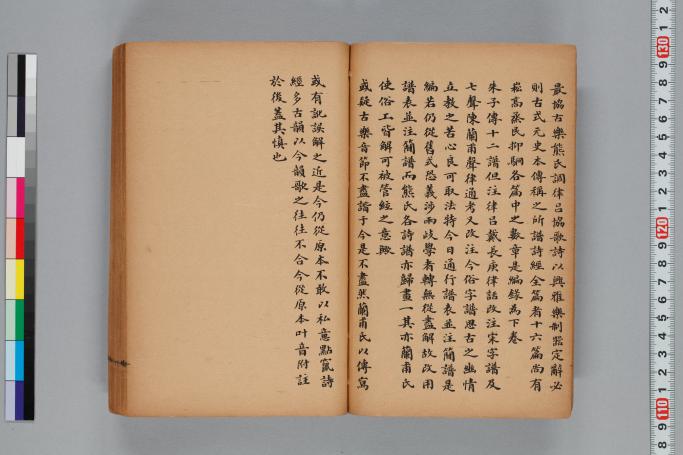 最協古樂熊氏調律呂協歌詩以興雅樂制器定辭必
則古式元史本傳稱之所譜詩經全篇者十六篇尚有
崧高烝民抑駉各篇中之數章是編錄為下卷
朱子傳十二譜但注律呂戴長庚律話改注宋字譜及
七聲陳蘭甫聲律通考又改注今俗字譜思古之幽情
立教之苦心良可取法特今日通行譜表並注簡譜是
編若仍從舊式恐義涉兩歧學者轉無從盡解故改用
譜表並注簡譜而熊氏各詩譜亦歸畫一其亦蘭甫氏
使俗工皆解可被管絃之意歟
或疑古樂音節不盡諧于今是不盡然蘭甫氏以傳寫
或有訛誤解之近是今仍從原本不敢以私意點竄詩
經多古韻以今韻歌之往往不合今從原本叶音附註
於後蓋其慎也
130
120
110
2
1
9
8
9
8
9
8